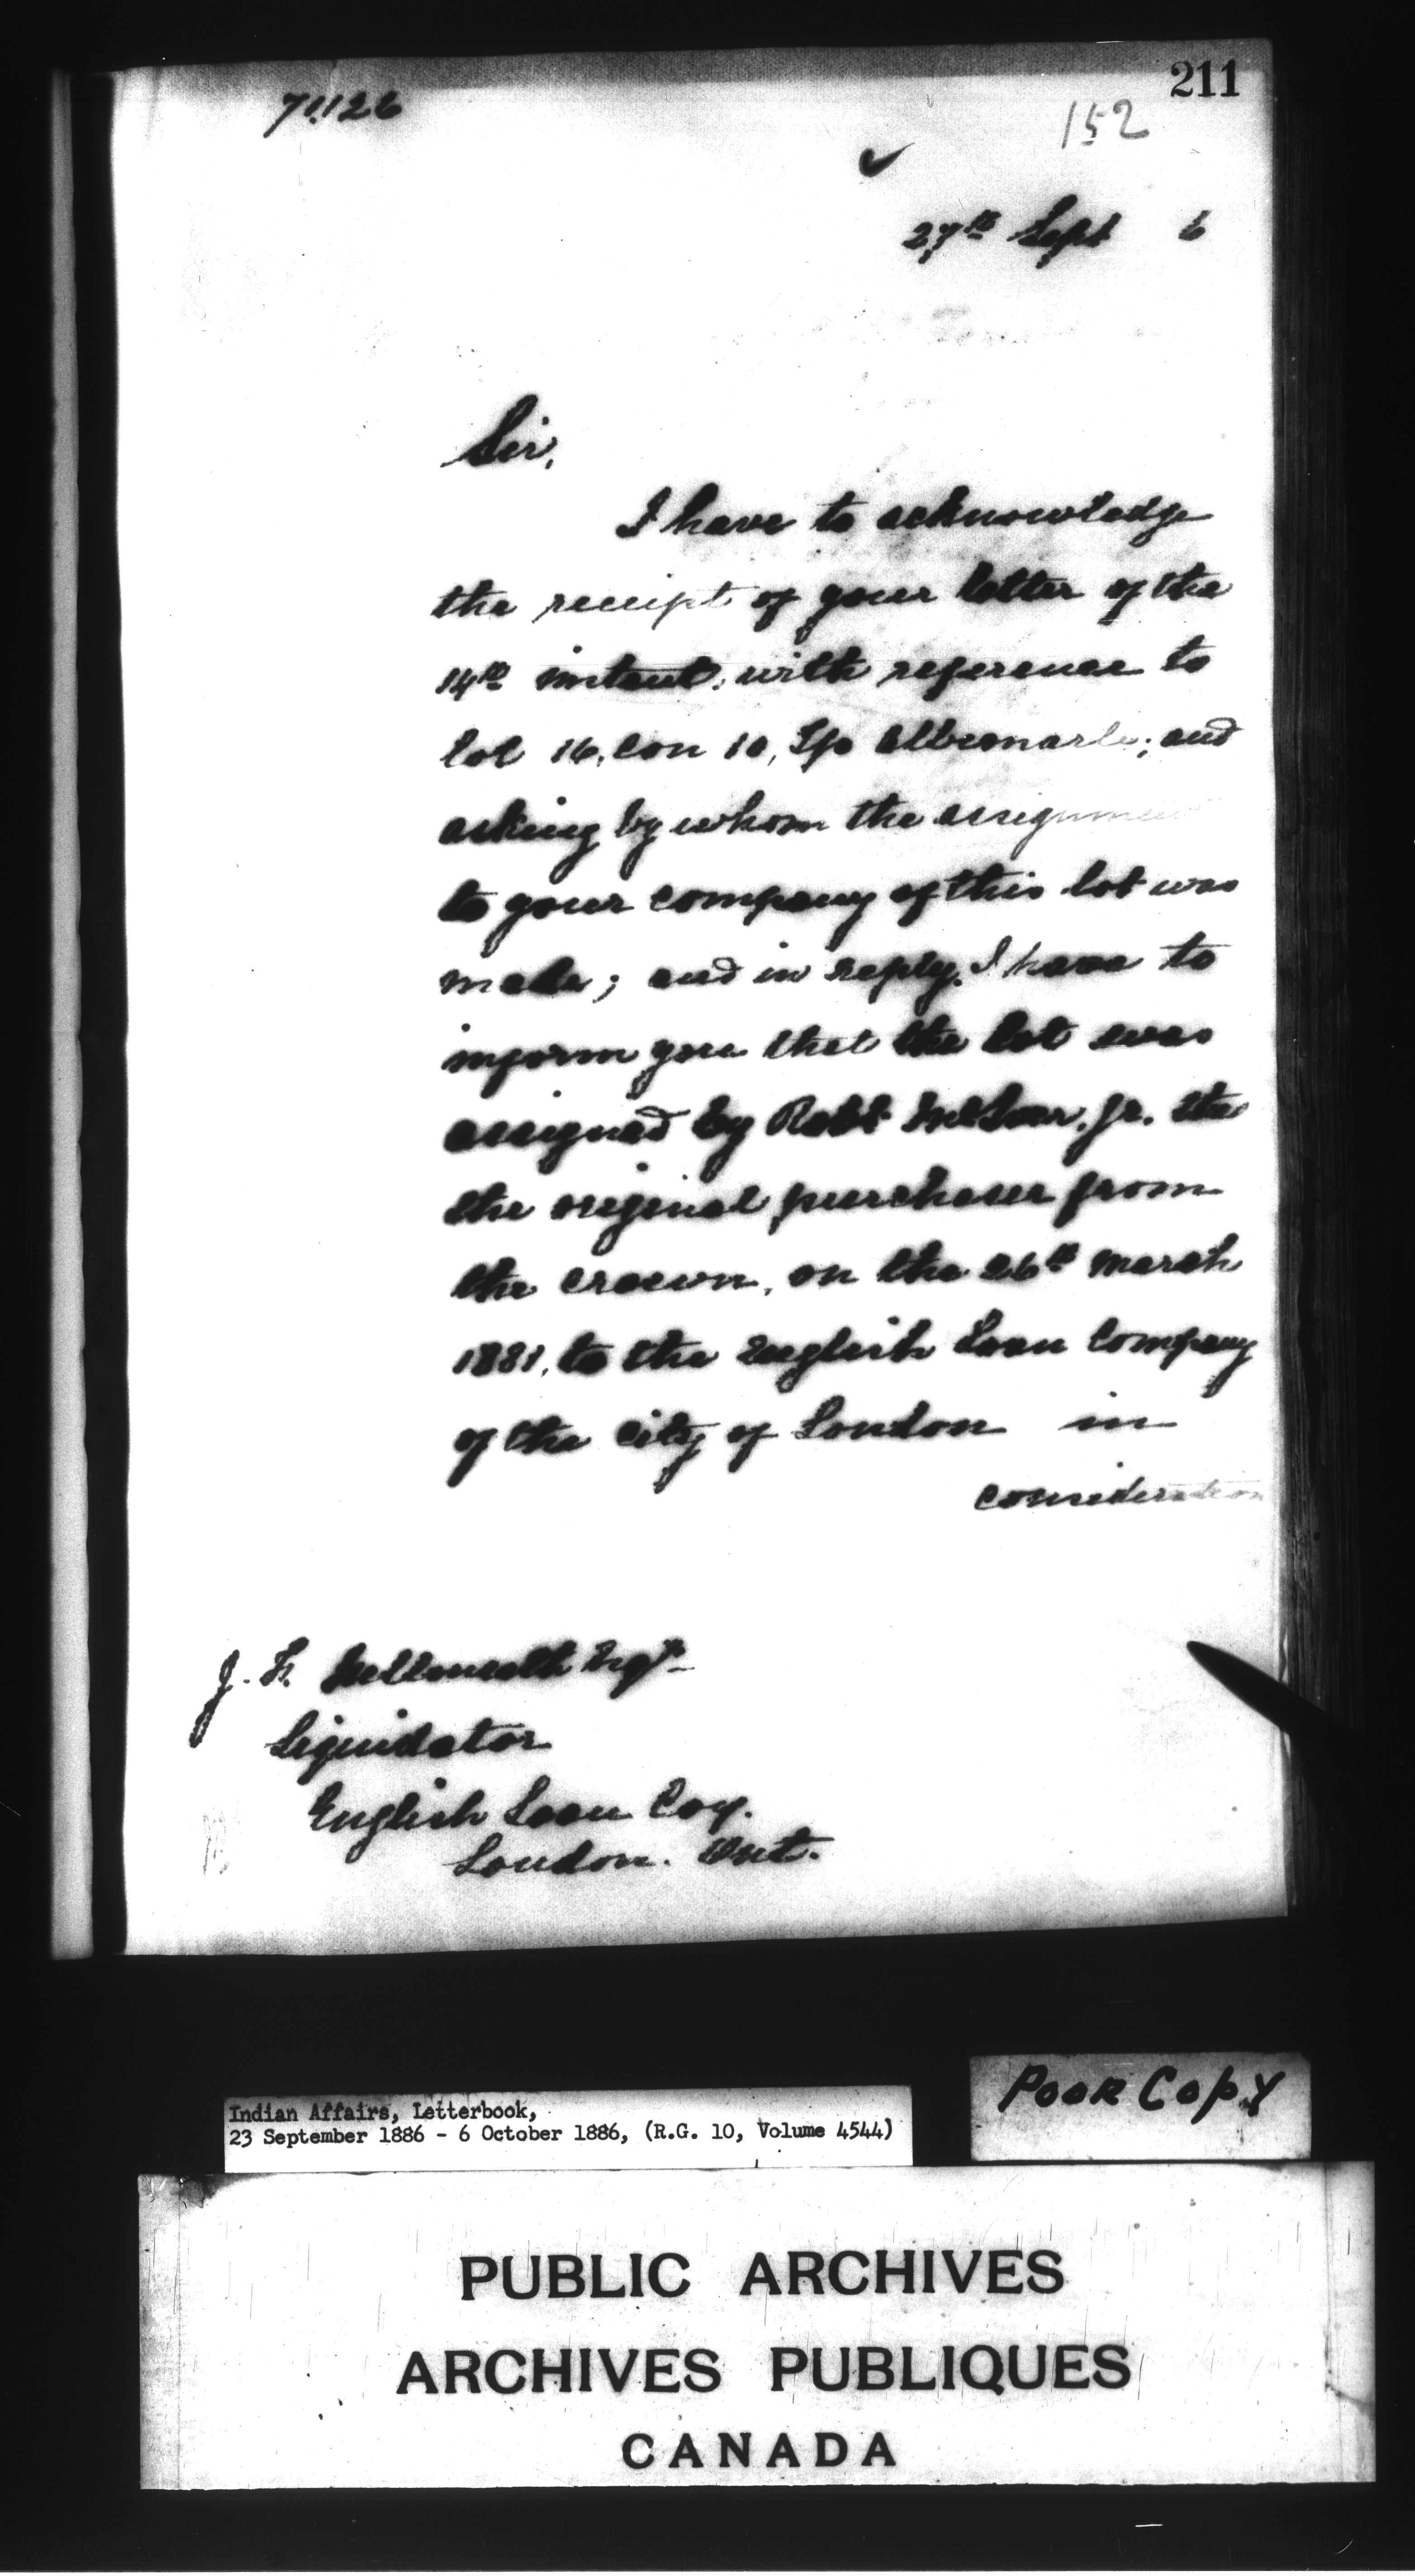 211
71126
152
27th Sept 6
Sir,
I have to acknowledge
the receipt of your letter of the
14th instant, with reference to
lot 16, Con 10, Tp Albemarle; and
asking by whom the assignment
to your company of this lot was
made; and in reply, I have to
inform you that the lot was
assigned by Robt Jr. the
the original purchaser from
the crown, on the 26th March
1881, to the English Loan Company
of the City of London in
consideration
J. F. Hellmuth Esqr
Liquidator
English Loan Coy.
London. Ont.
Poor Copy
Indian Affairs, Letterbook,
23 September 1886 - 6 October 1886, (R.G. 10, Volume 4544)
PUBLIC ARCHIVES
ARCHIVES PUBLIQUES
CANADA